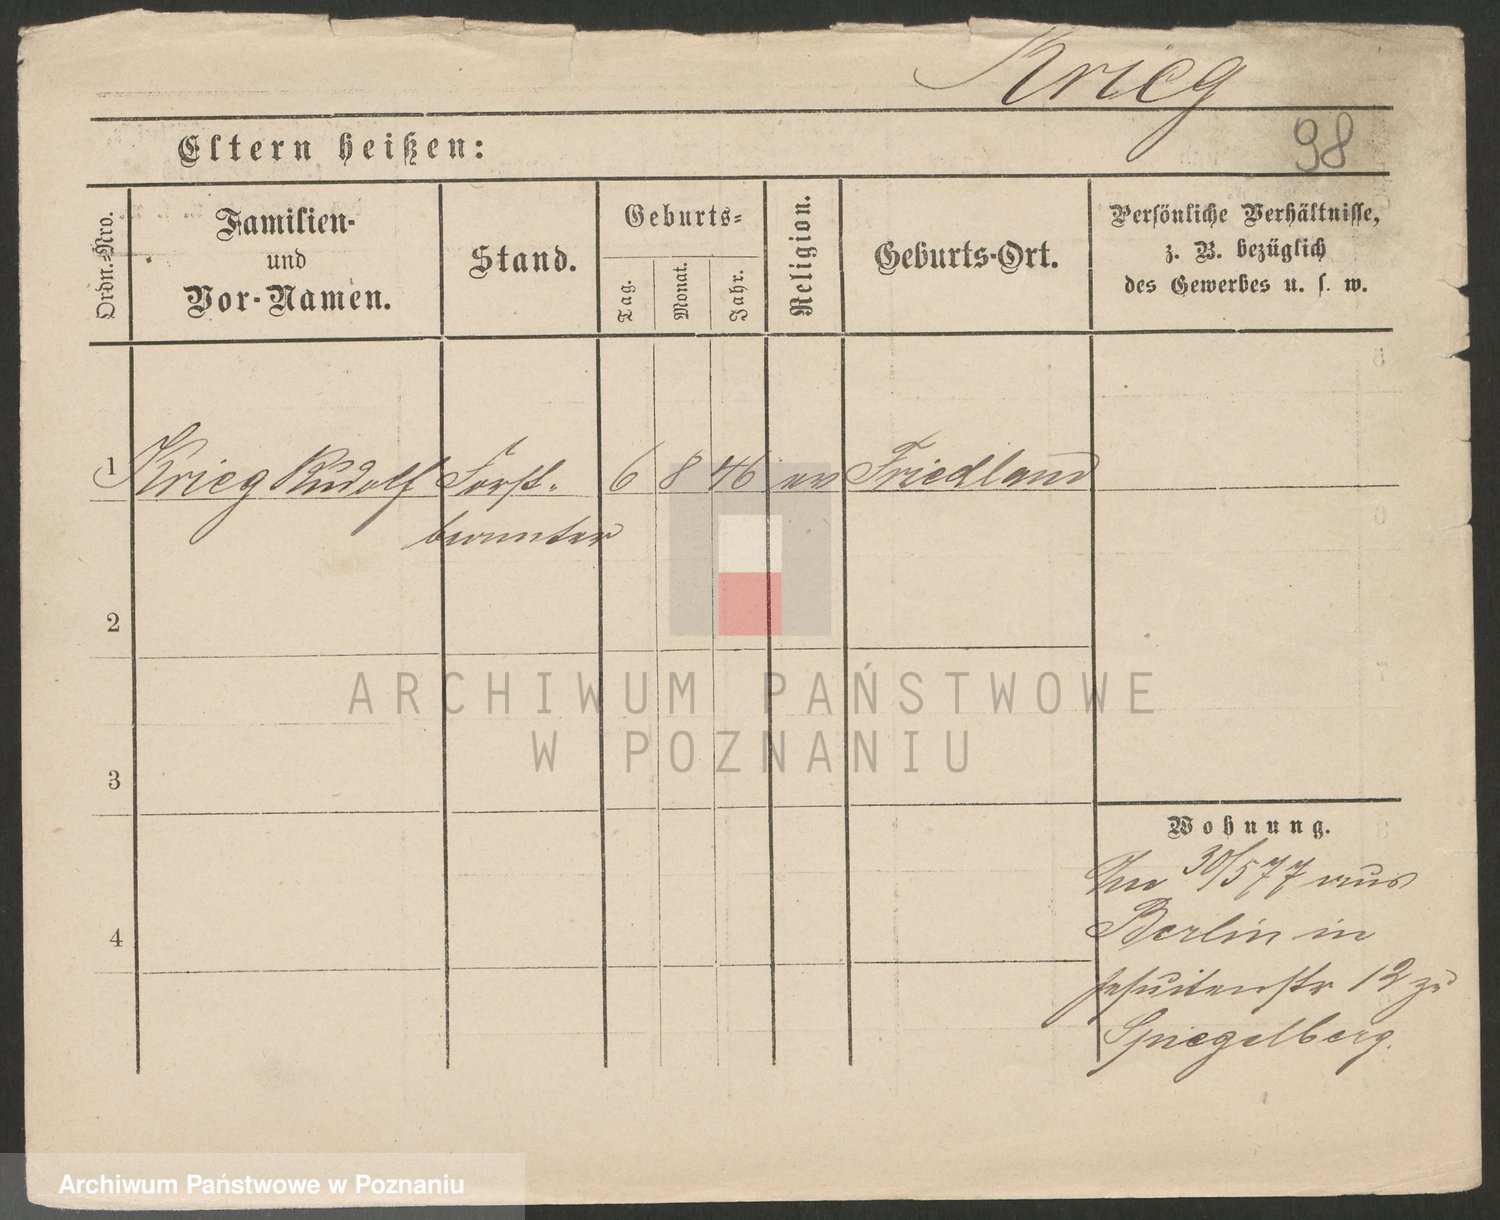 Krieg
98
Eltern heißen:
Ordn.-Nro.
Familien-
und
Vor-Namen.
Stand.
Geburts-
Tag.
Monat.
Jahr.
Religion.
Geburts-Ort.
Persönliche Verhältnisse,
z. B. bezüglich
des Gewerbes u. s. w.
1 Krieg Rudolf Forst- 6 8 46 ev Friedland
beamter
2
3
4
Wohnung.
30/5 77 aus
Berlin in
Jesuitenstr 12 zu
Spiegelberg.
ARCHIWUM PAŃSTWOWE
W POZNANIU
Archiwum Państwowe w Poznaniu